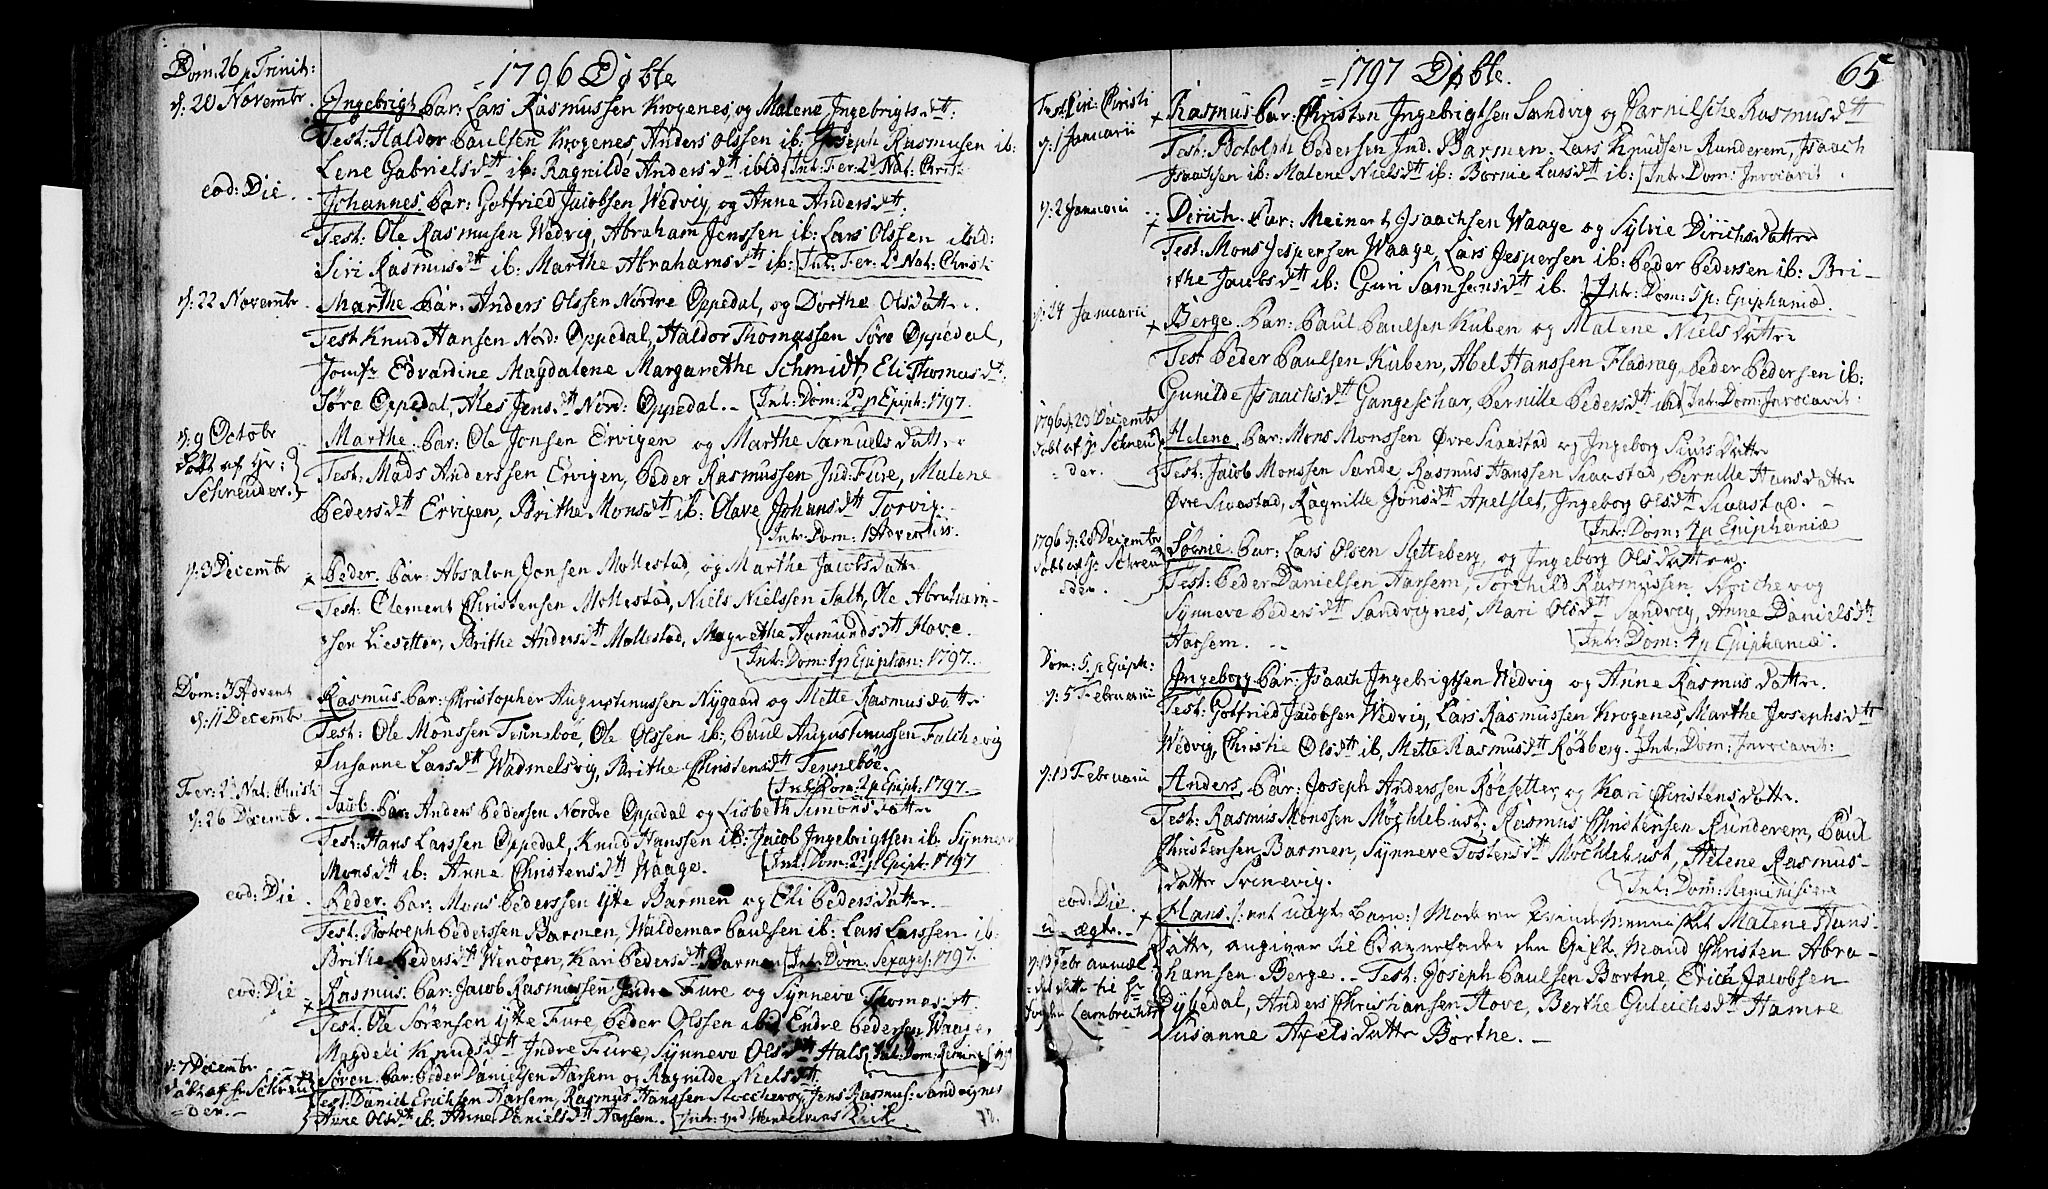 = 1796 Døbte
Dom: 26 p Trinit:
d: 20 Novembr.
Ingebrigt Par: Lars Rasmussen Krogenes, og Malene Ingebrigtsdtt:
Test: Haldor Paulsen Krogenes, Anders Olssen ib: Joseph Rasmusen ib:
Lene Gabrielsdtt ib: Ragnilde Andersdtt ibid [Int: Fer: 2d Nat: Christi
eod: Die
Johannes. Par: Gotfried Jacobsen Wedvig, og Anne Andersdtt.
Test: Ole Rasmusen Wedvig, Abraham Jenssen ib: Lars Olssen ibid:
Siri Rasmusdtt ib: Marthe Abrahamsdtt ib: [Int: Fer: 2d Nat: Christi
d: 22 Novembr
Marthe Par: Anders Olssen Nordre Oppedal, og Dorthe Olsdatter.
Test Knud Hansen Nord: Oppedal, Haldor Thomassen Søre Oppedal,
Jomfr Edvardine Magdalene Margarethe Schmidt, Eli Thomasdtt:
Søre Oppedal, Ales Jensdtt Nord: Oppedal. - [Int: Dom: 2d p Epiph: 1797.
d: 9 Octobr
Døbt af Hr:
Schreuder.
Marthe. Par: Ole Jonsen Ervigen og Marthe Samuelsdatter
Test: Mads Anderssen Ervigen, Peder Rasmussen Ind: Fure, Malene
Pedersdtt Ervigen, Brithe Monsdtt ib: Olave Johansdtt Torvig. -
[Int: Dom: 1 Adventus.
d: 3 Decembr
Peder. Par: Absalon Jonsen Mollestad, og Marthe Jacobsdatter
Test: Clement Christensen Mollestad, Niels Nielssen Salt, Ole Abraham-
sen Liesetter, Brithe Andersdtt Mollestad, Magrethe Aamundsdtt Hove.
[Int: Dom: 1 p Epiphan: 1797.
Dom: 3 Advent
d: 11 Decembr
Rasmus. Par: Christopher Augustinussen Nygaard og Mette Rasmusdatter
Test: Ole Monssen Tenneboe, Ole Olssen ib: Paul Augustinussen Falchevig
Susanne Larsdtt Wadmelsvig, Brithe Christensdtt Tenneböe.
[Int: Dom: 2 p Epiph: 1797.
Fer: 2d Nat: Christi
d: 26 Decembr.
Par: Anders Pedersen Nordre Oppedal og Lisbeth Simonsdatter
Test: Hans Larssen Oppedal, Knud Hanssen ib: Jacob Ingebrigtsen ib: Synneve
Monsdtt ib: Anne Christensdtt Waage. [Int: Dom: 2d p Epiph: 1797
eod: Die
Peder. Par: Mons Pederssen ytte Barmen og Eli Pedersdatter.
Test: Botolph Pederssen Barmen, Waldemar Paulsen ib: Lars Larssen ib:
Brithe Pedersdtt Kari Pedersdtt Barmen [Int: Dom: Sexages: 1797.
eod: Die
Rasmus. Par: Jacob Rasmussen Indre Fure og Synneve Thomasdtt.
Test: Ole Sørensen ytte Fure, Peder Olssen ibid, Endre Pedersen Waage,
Magdeli Knudsdtt Indre Fure, Synneve Olsdtt Hals
d: 7 Decembr
Døbt af Hr Schreu-
=der. -
Søren. Par: Peder Danielsen Aarsem og Ragnilde Nielsdtt.
Test: Daniel Erichsen Aarsem, Rasmus Hanssen Stochevog, Jens Rasmus: Sandvignes
Anne Olsdtt ib. Anne Danielsdtt Aarsem.
= 1797 Døbte.
65
Fest: Circ: Christi
d: 1 Januarii
Rasmus Par: Christen Ingebrigtsen Sandvig og Pernilsche Rasmusdtt
Test: Botolph Pedersen Ind. Barmen. Lars Knudsen Runderem, Isaach
Isaachsen ib: Malene Nielsdtt ib: Larsdtt ib: [Int: Dom: Invocavit.
d: 2 Januarii
Dirich. Par: Meinert Isaachsen Waage og Sylvie Dirichsdatter
Test: Mons Jespersen Waage, Lars Jespersen ib: Peder Pedersen ib: Bri-
the Jacobsdtt ib: Guri Samsonsdtt ib. [Int: Dom: 5 p: Epiphaniæ.
d: 24 Januarii
Berge. Par: Paul Paulsen Kuben og Malene Nielsdatter
Test Peder Paulsen Kuben, Abel Hanssen Fladrag, Peder Pedersen ib:
Gunilde Isaachsdtt Gangeschar, Pernille Pedersdtt ibid [Int: Dom: Invocavit.
1796 d: 20 Decembr
Døbt af Hr Schreu
der.
Helene. Par: Mons Monssen Øvre Skaastad og Ingeborg datter
Test: Jacob Monssen Sande, Rasmus Hanssen Skaastad, Pernille Hansdatter
Øvre Skaastad, Ragnille Jonsdtt Apelslet, Ingeborg Olsdtt Skaastad. -
[Int: Dom: 4 p Epiphaniæ
1796 d: 28 Decembr
Døbt af Hr Schreu
der.
Par: Lars Olsen og Ingeborg Olsdatter.
Test: Peder Danielsen Aarsem, Torchild Rasmussen
Synneve Pedersdtt Sandvignes, Mari Olsdtt Sandvig, Anne Danielsdtt
Aarsem. - - [Int: Dom: 4 p Epiphaniæ.
Dom: 5 p Epiph:
d: 5 Februarii
Ingeborg Par: Isaach Ingebrigtsen Wedvig og Anne Rasmusdatter.
Test: Gotfried Jacobsen Wedvig, Lars Rasmussen Krogenes, Marthe Josephsdtt
Wedvig, Christie Olsdtt ib, Mette Rasmusdtt Rødberg. [Int: Dom: Invocavit:
Februarii
Anders. Par: Joseph Anderssen Røesetter, og Kari Christensdatter.
Test: Rasmus Monssen Möchlebust, Rasmus Christensen Runderem, Paul
Christensen Barmen, Synneve Tostensdtt Möchlebust, Helene Rasmus-
datter Svinevig. [Int: Dom: Reminiscere
eod: Die.
u-ægte. -
Hans. /: et uægt barn :/ Moderen Qvinde Mennisket Malene Hans-
datter, angiver til Barnefader den Gift Mand Christen Abra-
hamsen Berge. - Test: Joseph Paulsen Bortne, Erich Jacobsen
Dybedal, Anders Christiansen Hove, Berthe Guleichsdtt Hamre
Susanne Axelsdatter Bortne. -